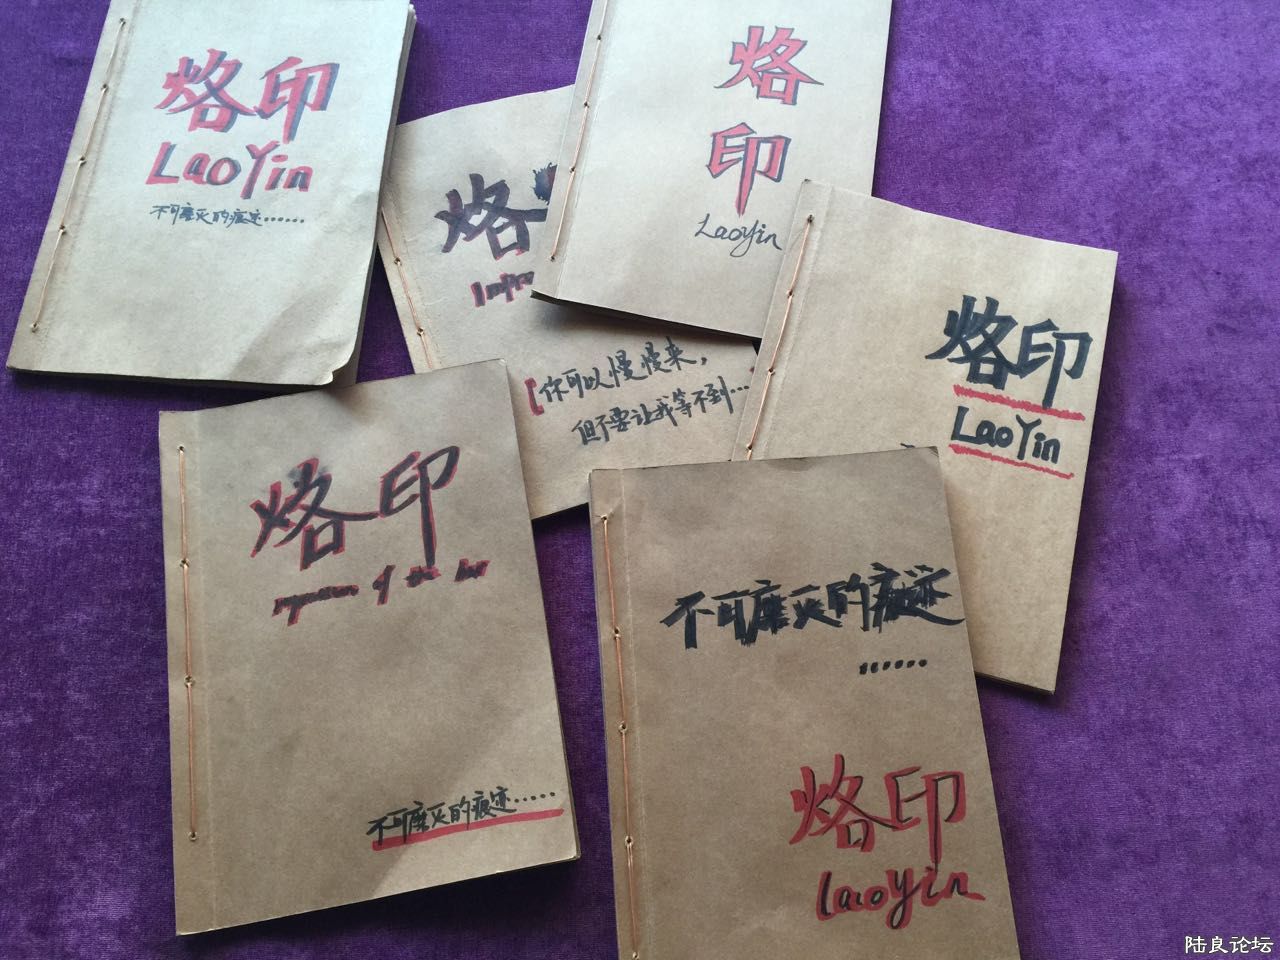 烙印
LaoYin
不可磨灭的痕迹……
烙
印
LaoYin
烙
你可以慢慢来，
但不要让我等不到…
烙印
LaoYin
烙印
of the
不可磨灭的痕迹……
不可磨灭的痕迹
……
烙印
laoyin
陆良论坛